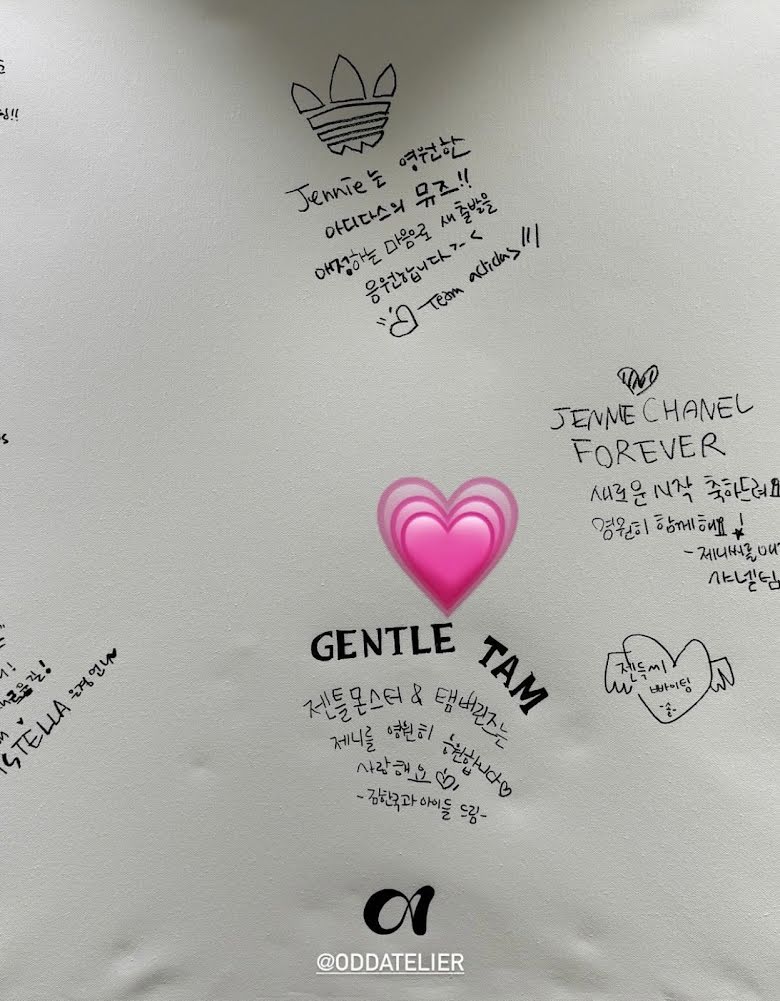 Jennie는 영원한
아디다스의 뮤즈!!
애정하는 마음으로 새 출발을
응원합니다~<
Team adidas
JENNIE CHANEL
FOREVER
새로운 시작 축하드려요
영원히 함께해요!
-제니씨를
샤넬팀
GENTLE TAM
젠틀몬스터 & 탬버린즈는
제니를 영원히 응원합니다♡
사랑해요
-김한국과 아이들 드림-
젠득씨
빠이팅
-솔-
STELLA 은경언니
@ODDATELIER